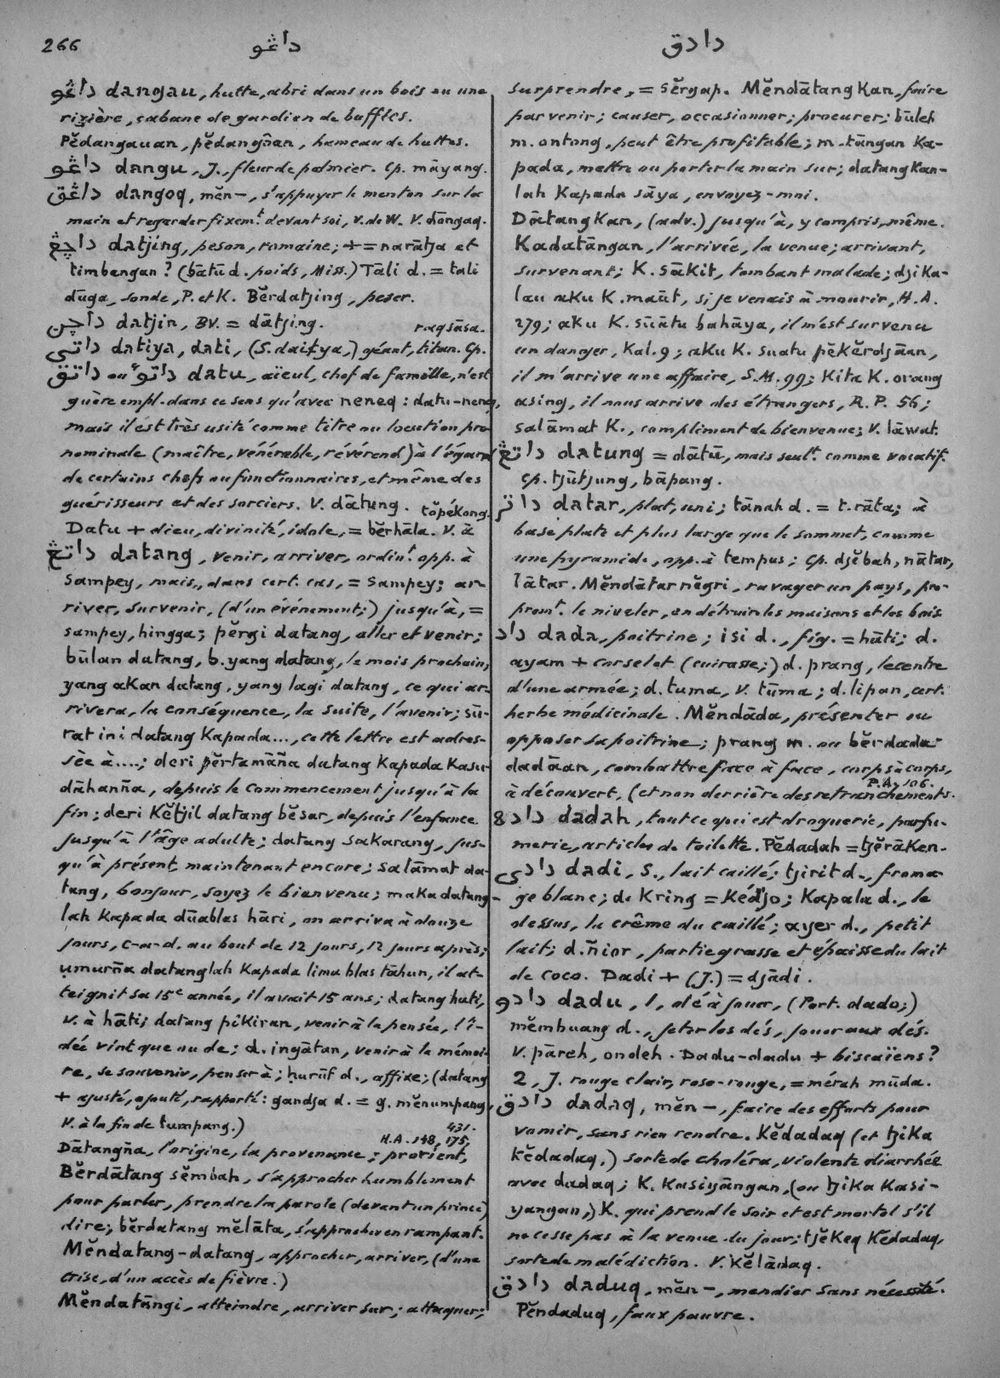 266 داڠو دادق
داڠو dangau, hutte, abri dans un bois ou une
rizière, cabane de gardien de buffles.
Pĕdangauan, pĕdangōan, hameau de huttes.
داڠو dangu, J., fleur de palmier. Cp. māyang.
داڠق dangoq, mĕn-, s'appuyer le menton sur la
main et regarder fixemt. devant soi, v. de W. V. dōngaq.
داچڠ datjing, peson, romaine; + = narātja et
timbangan? (bātū d. poids, Miss.) Tāli d. = tali
dūga, sonde, P. et K. Bĕrdatjing, peser.
داچن datjin, BV. = dātjing.
raqsāsa.
داتي datiya, dati, (S. daitya,) géant, titan. Cp.
داتق ou داتوٴ datu, aïeul, chef de famille, n'est
guère empl. dans ce sens qu'avec neneq: datu-neneq,
mais il est très usité comme titre ou locution pro
nominale (maître, vénérable, révérend) à l'égard
de certains chefs ou fonctionnaires, et même des
guérisseurs et des sorciers. V. dātung.
tŏpékong.
Datu + dieu, divinité, idole, = bĕrhāla. V. à
داتڠ datang, venir, arriver, ordint. opp. à
sampey, mais, dans cert. cas, = sampey; ar-
river, survenir, (d'un événement;) jusqu'à, =
sampey, hingga; pĕrgi datang, aller et venir;
būlan datang, b. yang datang, le mois prochain,
yang akan datang, yang lagi datang, ce qui ar-
rivera, la conséquence, la suite, l'avenir; sū-
rat ini datang kapada..., cette lettre est adres-
sée à....; deri pĕrtamāña datang kapada kasu-
dāhanña, depuis le commencement jusqu'à la
fin; deri kĕtjil datang bĕsar, depuis l'enfance
jusqu'à l'âge adulte; datang sakarang, jus-
qu'à présent, maintenant encore; salāmat da-
tang, bonjour, soyez le bienvenu; maka datang-
lah kapada dūablas hāri, on arriva à douze
jours, c-a-d. au bout de 12 jours, 12 jours après;
umurña datanglah kapada lima blas tāhun, il at-
teignit sa 15e année, il avait 15 ans; datang hati,
V. à hāti; datang pikiran, venir à la pensée, l'i-
dée vint que ou de; d. ingātan, venir à la mémoi-
re, se souvenir, penser à; hurūf d., affixe; (datang
+ ajusté, ajouté, rapporté: gandja d. = g. mĕnumpang,
V. à la fin de tumpang.)
431.
H.A. 148, 175,
Dātangña, l'origine, la provenance; provient,
Bĕrdātang sĕmbah, s'approcher humblement
pour parler, prendre la parole (devant un prince)
dire; bĕrdatang mĕlāta, s'approcher en rampant.
Mĕndatang-datang, approcher, arriver, (d'une
crise, d'un accès de fièvre.)
Mĕndatāngi, atteindre, arriver sur; attaquer;
surprendre, = sĕrgap. Mĕndātangkan, faire
parvenir; causer, occasionner; procurer; būleh
m. ontong, peut être profitable; m. tāngan ka-
pada, mettre ou porter la main sur; datangkan-
lah kapada sāya, envoyez-moi.
Dātangkan, (adv.) jusqu'à, y compris, même.
Kadatāngan, l'arrivée, la venue; arrivant,
survenant; K. sākit, tombant malade; djika-
lau aku K. maūt, si je venais à mourir, H.A.
279; aku K. sūātu bahāya, il m'est survenu
un danger, Kal. 9; aku K. suatu pĕkĕrdjāan,
il m'arrive une affaire, S.M. 99; kita K. orang
asing, il nous arrive des étrangers, R.P. 56;
salāmat K., compliment de bienvenue; V. lāwat.
داتڠ datung = dātū, mais seult. comme vocatif.
Cp. tjūtjung, bāpang.
داتر datar, plat, uni; tānah d. = t. rāta; à
base plate et plus large que le sommet, comme
une pyramide, opp. à tempus; Cp. djĕbah, nātar,
lātar. Mĕndātar nĕgri, ravager un pays, pro-
promt. le niveler, en détruire les maisons et les bois.
داد dada, poitrine; isi d., fig. = hāti; d.
ayam + corselet (cuirasse;) d. prang, le centre
d'une armée; d. tuma, V. tūma; d. lipan, cert.
herbe médicinale. Mĕndāda, présenter ou
opposer sa poitrine; prang m. ou bĕrdada
dadāan, combattre face à face, corps à corps,
P.Ay 106.
à découvert, (et non derrière des retranchements.
داده dadah, tout ce qui est droguerie, parfu-
merie, articles de toilette. Pĕdadah = tjĕrāken-
دادي dadi, S., lait caillé; tjirit d., froma
ge blanc; d. kring = kédjo; kapala d., le
dessus, la crême du caillé; ayer d., petit
lait; d. ñior, partie grasse et épaisse du lait
de coco. Dadi + (J.) = djādi.
دادو dadu, 1, dé à jouer, (Port. dado;)
mĕmbuang d., jeter les dés, jouer aux dés.
V. pāreh, ondeh. Dadu-dadu + biscaïens?
2, J. rouge clair, rose-rouge, = mérah mūda.
دادق dadaq, mĕn-, faire des efforts pour
vomir, sans rien rendre. Kĕdadaq (et tjika
kĕdadaq,) sorte de choléra, violente diarrhée
avec dadaq; K. kasiyāngan, (ou tjika kasi-
yangan,) K. qui prend le soir et est mortel s'il
ne cesse pas à la venue du jour; tjĕkeq kĕdadaq,
sorte de malédiction. V. kĕlādaq.
دادق daduq, mĕn-, mendier sans nécessité.
Pĕndaduq, faux pauvre.